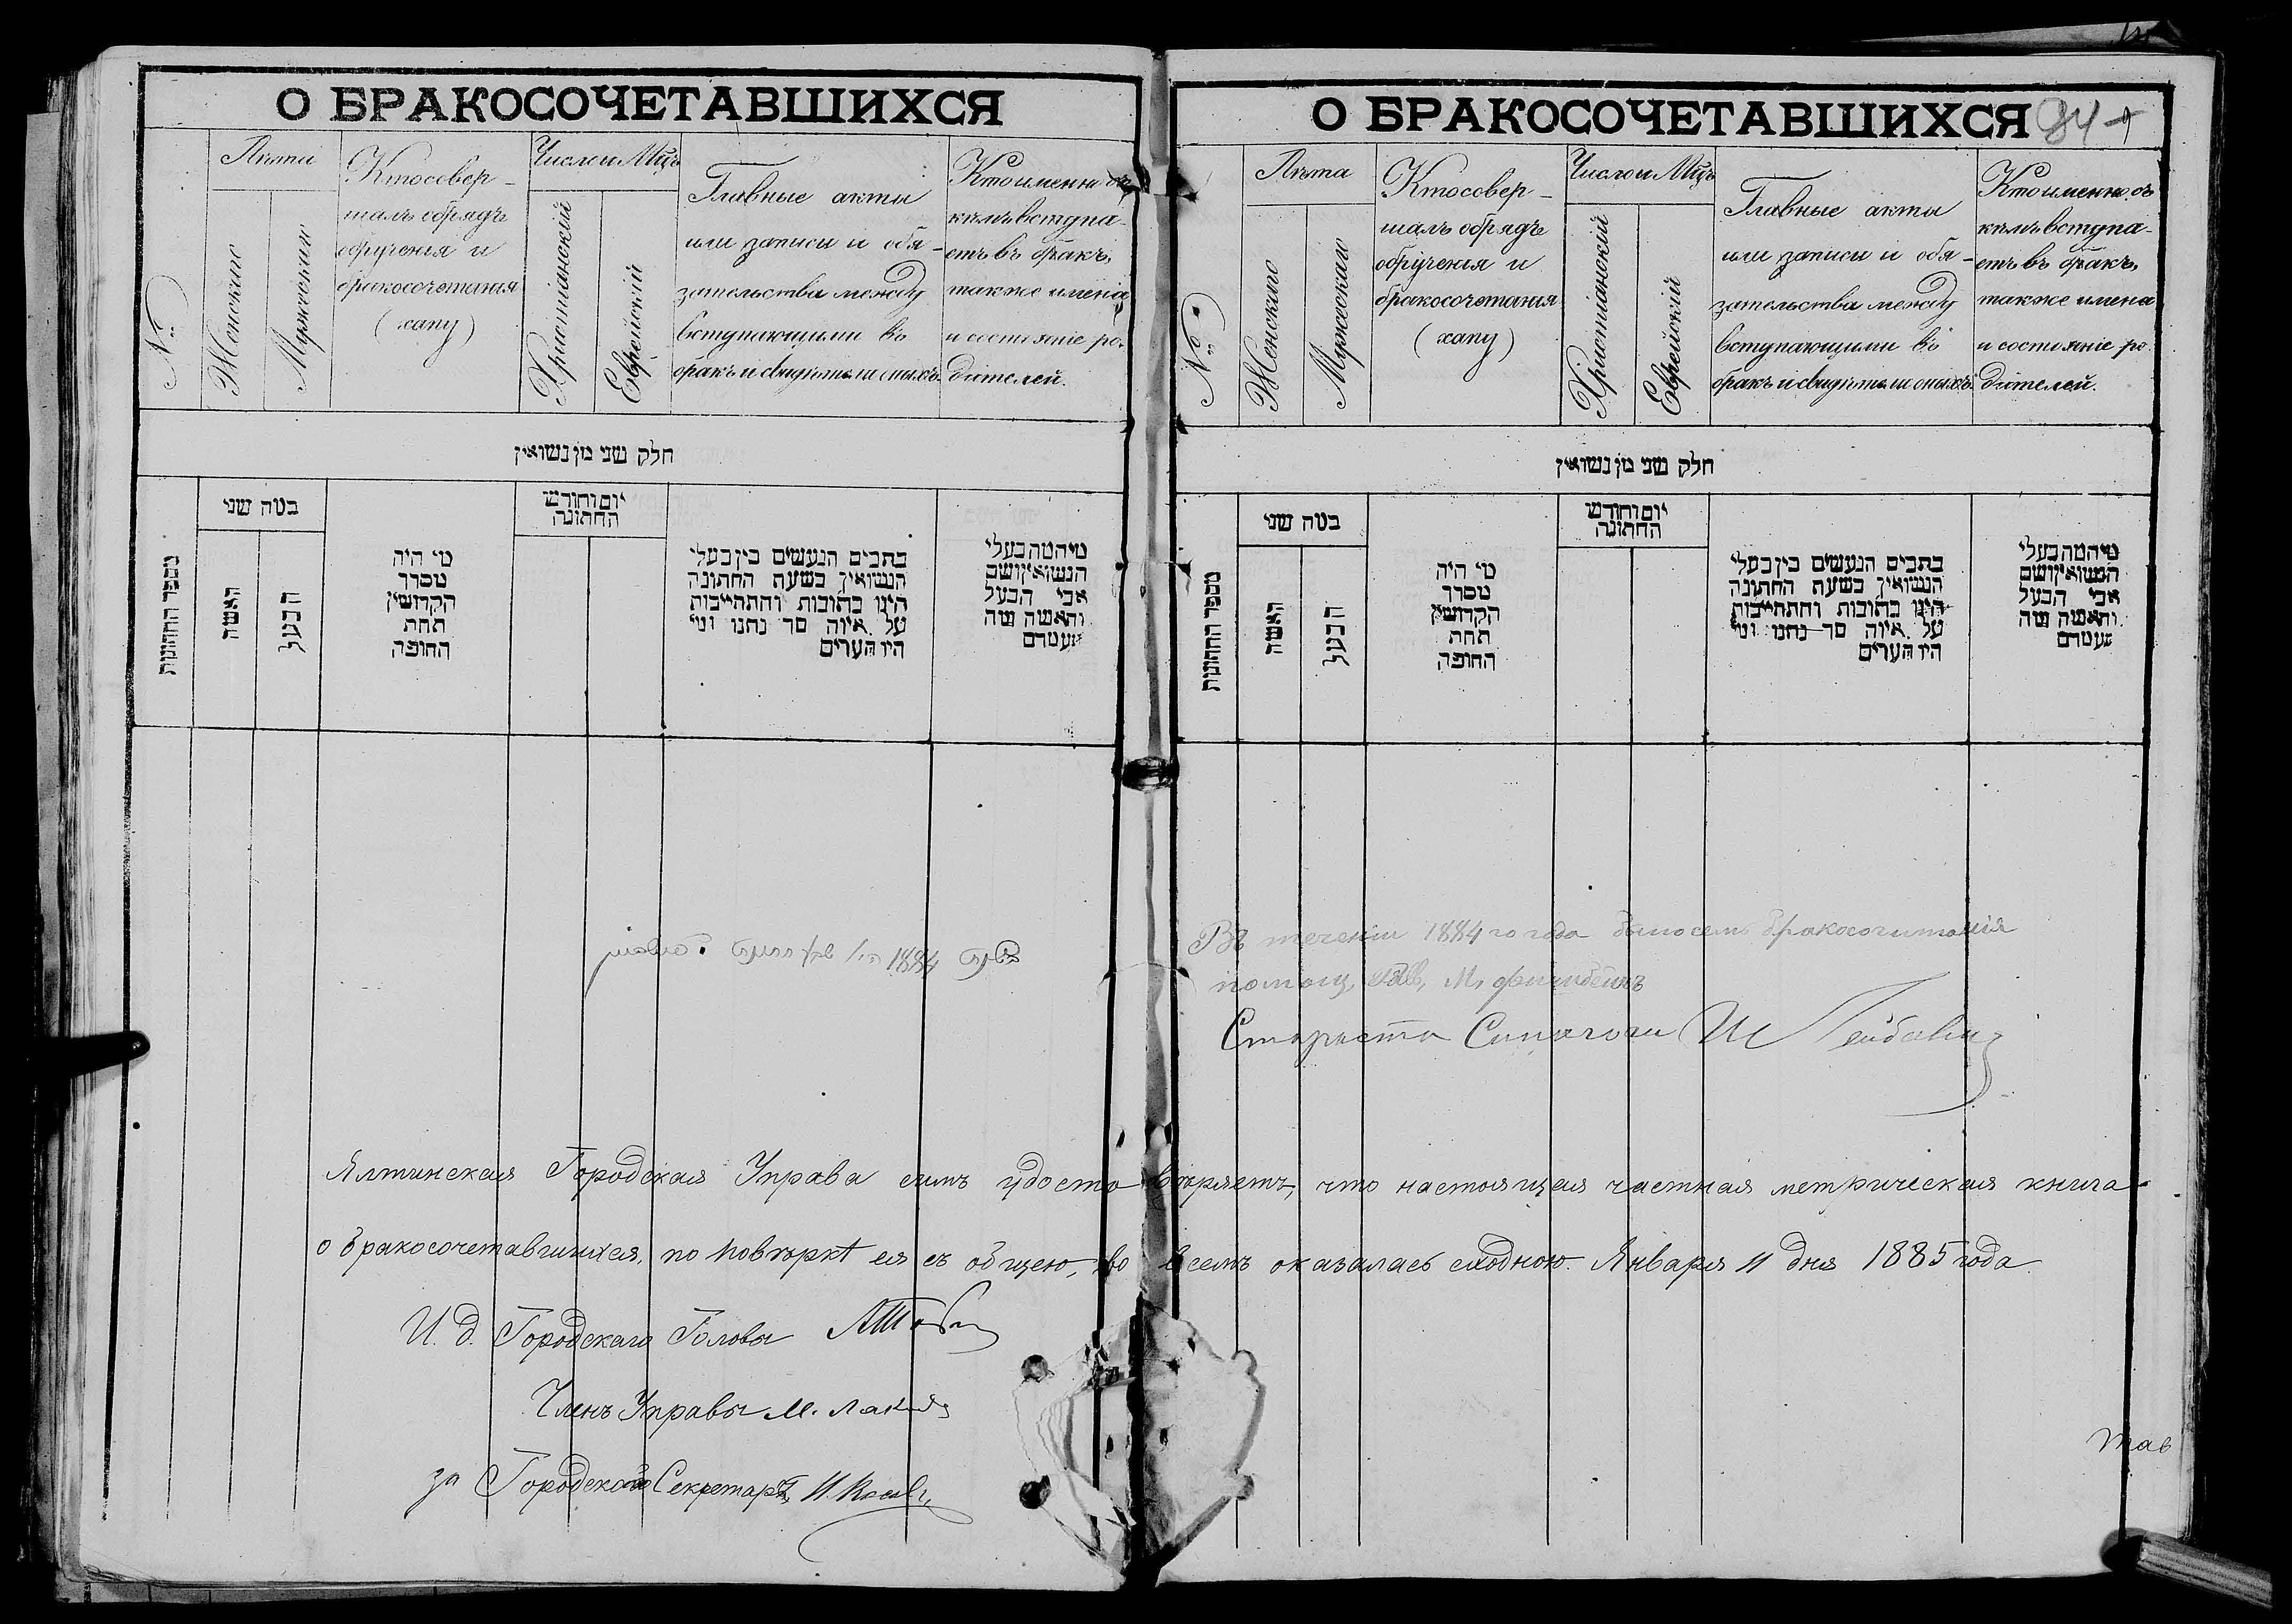 О БРАКОСОЧЕТАВШИХСЯ
№
Лѣта
Женскаго
Мужескаго
Кто совер-
шалъ обрядъ
обрученія и
бракосочетанія
(хапу)
Число и Мцъ
Христіанскій
Еврейскій
Главные акты
или записи и обя-
зательства между
вступающими въ
бракъ и свидѣтели оныхъ
Кто именно съ
кѣмъ вступа-
етъ въ бракъ,
также имена
и состояніе ро-
дителей.
חלק שני מן נשואין
מספר החתונות
כמה שני
האשה
הבעל
מי היה
מסדר
הקדושין
תחת
החופה
יום וחודש
החתונה
כתבים הנעשים בין בעלי
הנשואין בשעת החתונה
היינו כתובות והתחייבות
על איזה סך נתנו ומי
היו העדים
מי המה בעלי
הנשואין ושם
אבי הבעל
והאשה ומה
מעמדם
1884
О БРАКОСОЧЕТАВШИХСЯ 84
№
Лѣта
Женскаго
Мужескаго
Кто совер-
шалъ обрядъ
обрученія и
бракосочетанія
(хапу)
Число и Мцъ
Христіанскій
Еврейскій
Главные акты
или записи и обя-
зательства между
вступающими въ
бракъ и свидѣтели оныхъ
Кто именно съ
кѣмъ вступа-
етъ въ бракъ,
также имена
и состояніе ро-
дителей.
חלק שני מן נשואין
מספר החתונות
כמה שני
האשה
הבעל
מי היה
מסדר
הקדושין
תחת
החופה
יום וחודש
החתונה
כתבים הנעשים בין בעלי
הנשואין בשעת החתונה
היינו כתובות והתחייבות
על איזה סך נתנו ומי
היו העדים
מי המה בעלי
הנשואין ושם
אבי הבעל
והאשה ומה
מעמדם
Въ теченіи 1884 го года было семь бракосочитанія
помощ, М,
Староста Синагоги
Ялтинская Городская Управа симъ удостовѣряетъ, что настоящая частная метрическая книга
о бракосочетавшихся, по повѣркѣ ея съ общею, во всемъ оказалась сходною. Января 11 дня 1885 года
И. д. Городскаго Головы
Членъ Управы М.
за Городского Секретаря И.
Тав